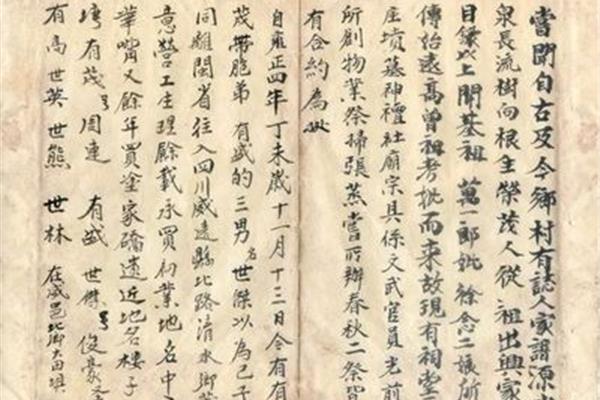 嘗聞自古及今鄉村有誌人家譜源
泉長流樹向根生榮茂人從祖出興家
目録以上開基祖萬一郎妣徐念二娘所
傳始遠高曾祖考妣而来故現有祠堂
座墳墓神禮社廟宗具係文武官員光前
所創物業祭掃張蒸嘗所辦春秋二祭皆
有合約為
自雍正四年丁未歲十一月十三日今有有
茂帶胞弟有盛的三男名世傑以為己子
同離閩省往入四川威遠縣北路清水鄉
意營工生理餘載承買初業地名中
華嘴又餘年買塗家磆遠近地名樓子
塆有茂号周連有盛世傑号俊豪
有高世英世熊世林在威邑北鄉大田